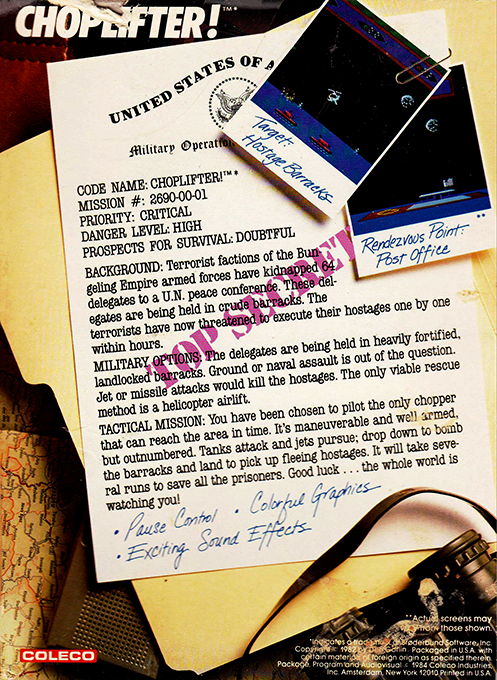 CHOPLIFTER!™*
UNITED STATES OF A
Military Operation
Target:
Hostage Barracks
**
Rendezvous Point:
Post Office
CODE NAME: CHOPLIFTER!™*
MISSION #: 2690-00-01
PRIORITY: CRITICAL
DANGER LEVEL: HIGH
PROSPECTS FOR SURVIVAL: DOUBTFUL
TOP SECRET
BACKGROUND: Terrorist factions of the Bun-
geling Empire armed forces have kidnapped 64
delegates to a U.N. peace conference. These del-
egates are being held in crude barracks. The
terrorists have now threatened to execute their hostages one by one
within hours.
MILITARY OPTIONS: The delegates are being held in heavily fortified,
landlocked barracks. Ground or naval assault is out of the question.
Jet or missile attacks would kill the hostages. The only viable rescue
method is a helicopter airlift.
TACTICAL MISSION: You have been chosen to pilot the only chopper
that can reach the area in time. It's maneuverable and well armed,
but outnumbered. Tanks attack and jets pursue; drop down to bomb
the barracks and land to pick up fleeing hostages. It will take seve-
ral runs to save all the prisoners. Good luck . . . the whole world is
watching you!
• Pause Control • Colorful Graphics
• Exciting Sound Effects
**Actual screens may
from those shown.
*Indicates a trademark of Brøderbund Software, Inc.
Copyright © 1982 by Dan Gorlin. Packaged in U.S.A. with
certain materials of foreign origin as specified therein.
Package, Program and Audiovisual © 1984 Coleco Industries,
Inc. Amsterdam, New York 12010 Printed in U.S.A.
COLECO